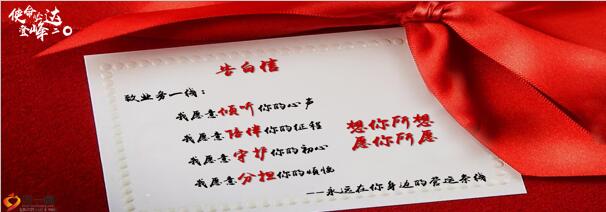 使命必达
登峰二〇
告白信
致业务一线：
我愿意倾听你的心声
我愿意陪伴你的征程
我愿意守护你的初心
我愿意分担你的烦恼
想你所想
愿你所愿
--永远在你身边的营运条线